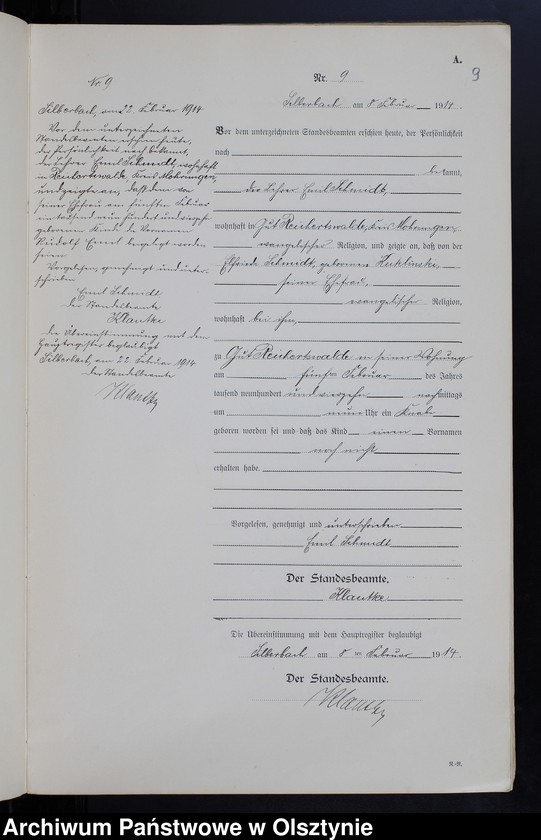 A.
9
Nr. 9
Silberbach am 8 Februar 1914.
Vor dem unterzeichneten Standesbeamten erschien heute, der Persönlichkeit
nach
bekannt,
der Lehrer Emil Schmidt,
wohnhaft in Gut Reichertswalde, Kreis Mohrungen,
evangelischer Religion, und zeigte an, daß von der
Elfriede Schmidt, geborenen
seiner Ehefrau,
evangelischer Religion,
wohnhaft bei ihm,
zu Gut Reichertswalde in seiner Wohnung
am fünften Februar des Jahres
tausend neunhundert und vierzehn nachmittags
um neun Uhr ein Knabe
geboren worden sei und daß das Kind einen Vornamen
noch nicht
erhalten habe.
Vorgelesen, genehmigt und unterschrieben
Emil Schmidt
Der Standesbeamte.
Klautke
Die Übereinstimmung mit dem Hauptregister beglaubigt
Silberbach am 8 ten Februar 1914.
Der Standesbeamte.
Klautke
R.-R.
No 9
Silberbach, am 22. Februar 1914
Vor dem unterzeichneten
Standesbeamten erschien heute,
der Persönlichkeit nach bekannt,
der Lehrer Emil Schmidt, wohnhaft
in Reichertswalde, Kreis Mohrungen,
und zeigte an, daß dem von
seiner Ehefrau am fünften Februar
eintausend neunhundert und vierzehn
geborenen Kinde die Vornamen
Rudolf Emil beigelegt worden
seien
Vorgelesen, genehmigt und unter-
schrieben
Emil Schmidt
der Standesbeamte
Klautke
die Übereinstimmung mit dem
Hauptregister beglaubigt
Silberbach, am 22 Februar 1914
der Standesbeamte
Klautke
Archiwum Państwowe w Olsztynie